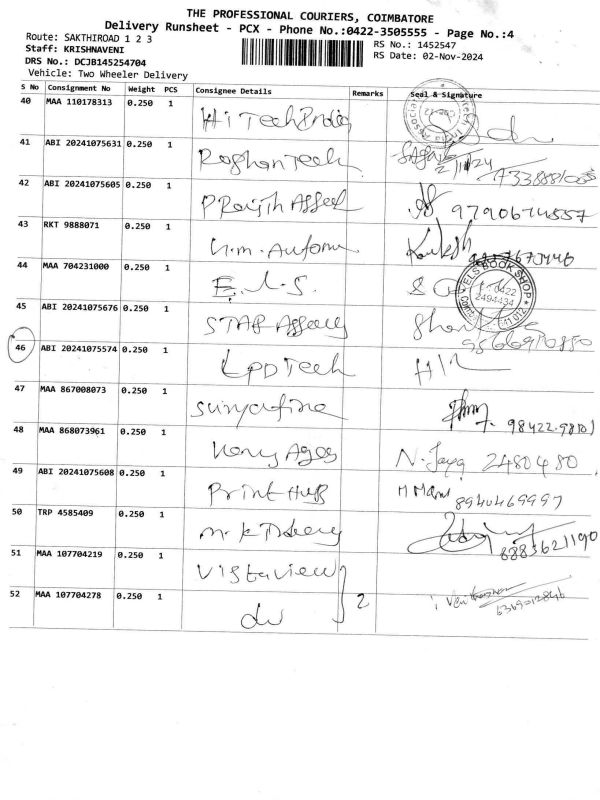 THE PROFESSIONAL COURIERS, COIMBATORE
Delivery Runsheet - PCX - Phone No.:0422-3505555 - Page No.:4
Route: SAKTHIROAD 1 2 3
RS No.: 1452547
Staff: KRISHNAVENI
RS Date: 02-Nov-2024
DRS No.: DCJB145254704
Vehicle: Two Wheeler Delivery
S No Consignment No Weight PCS Consignee Details Remarks Seal & Signature
40 MAA 110178313 0.250 1 Hi Tech India
41 ABI 20241075631 0.250 1 Roshan Tech 2/11/24
42 ABI 20241075605 0.250 1 9790674557
43 RKT 9888071 0.250 1
44 MAA 704231000 0.250 1 E.L.S.
ELS BOOK SHOP
2494434
641 012
45 ABI 20241075676 0.250 1 STAR
46 ABI 20241075574 0.250 1 LPD Tech
47 MAA 867008073 0.250 1 Suryafine
48 MAA 868073961 0.250 1 N. Jaya 2480480
49 ABI 20241075608 0.250 1 Print Hub 8940469997
50 TRP 4585409 0.250 1 8883621190
51 MAA 107704219 0.250 1 Vistaview
52 MAA 107704278 0.250 1 do 2